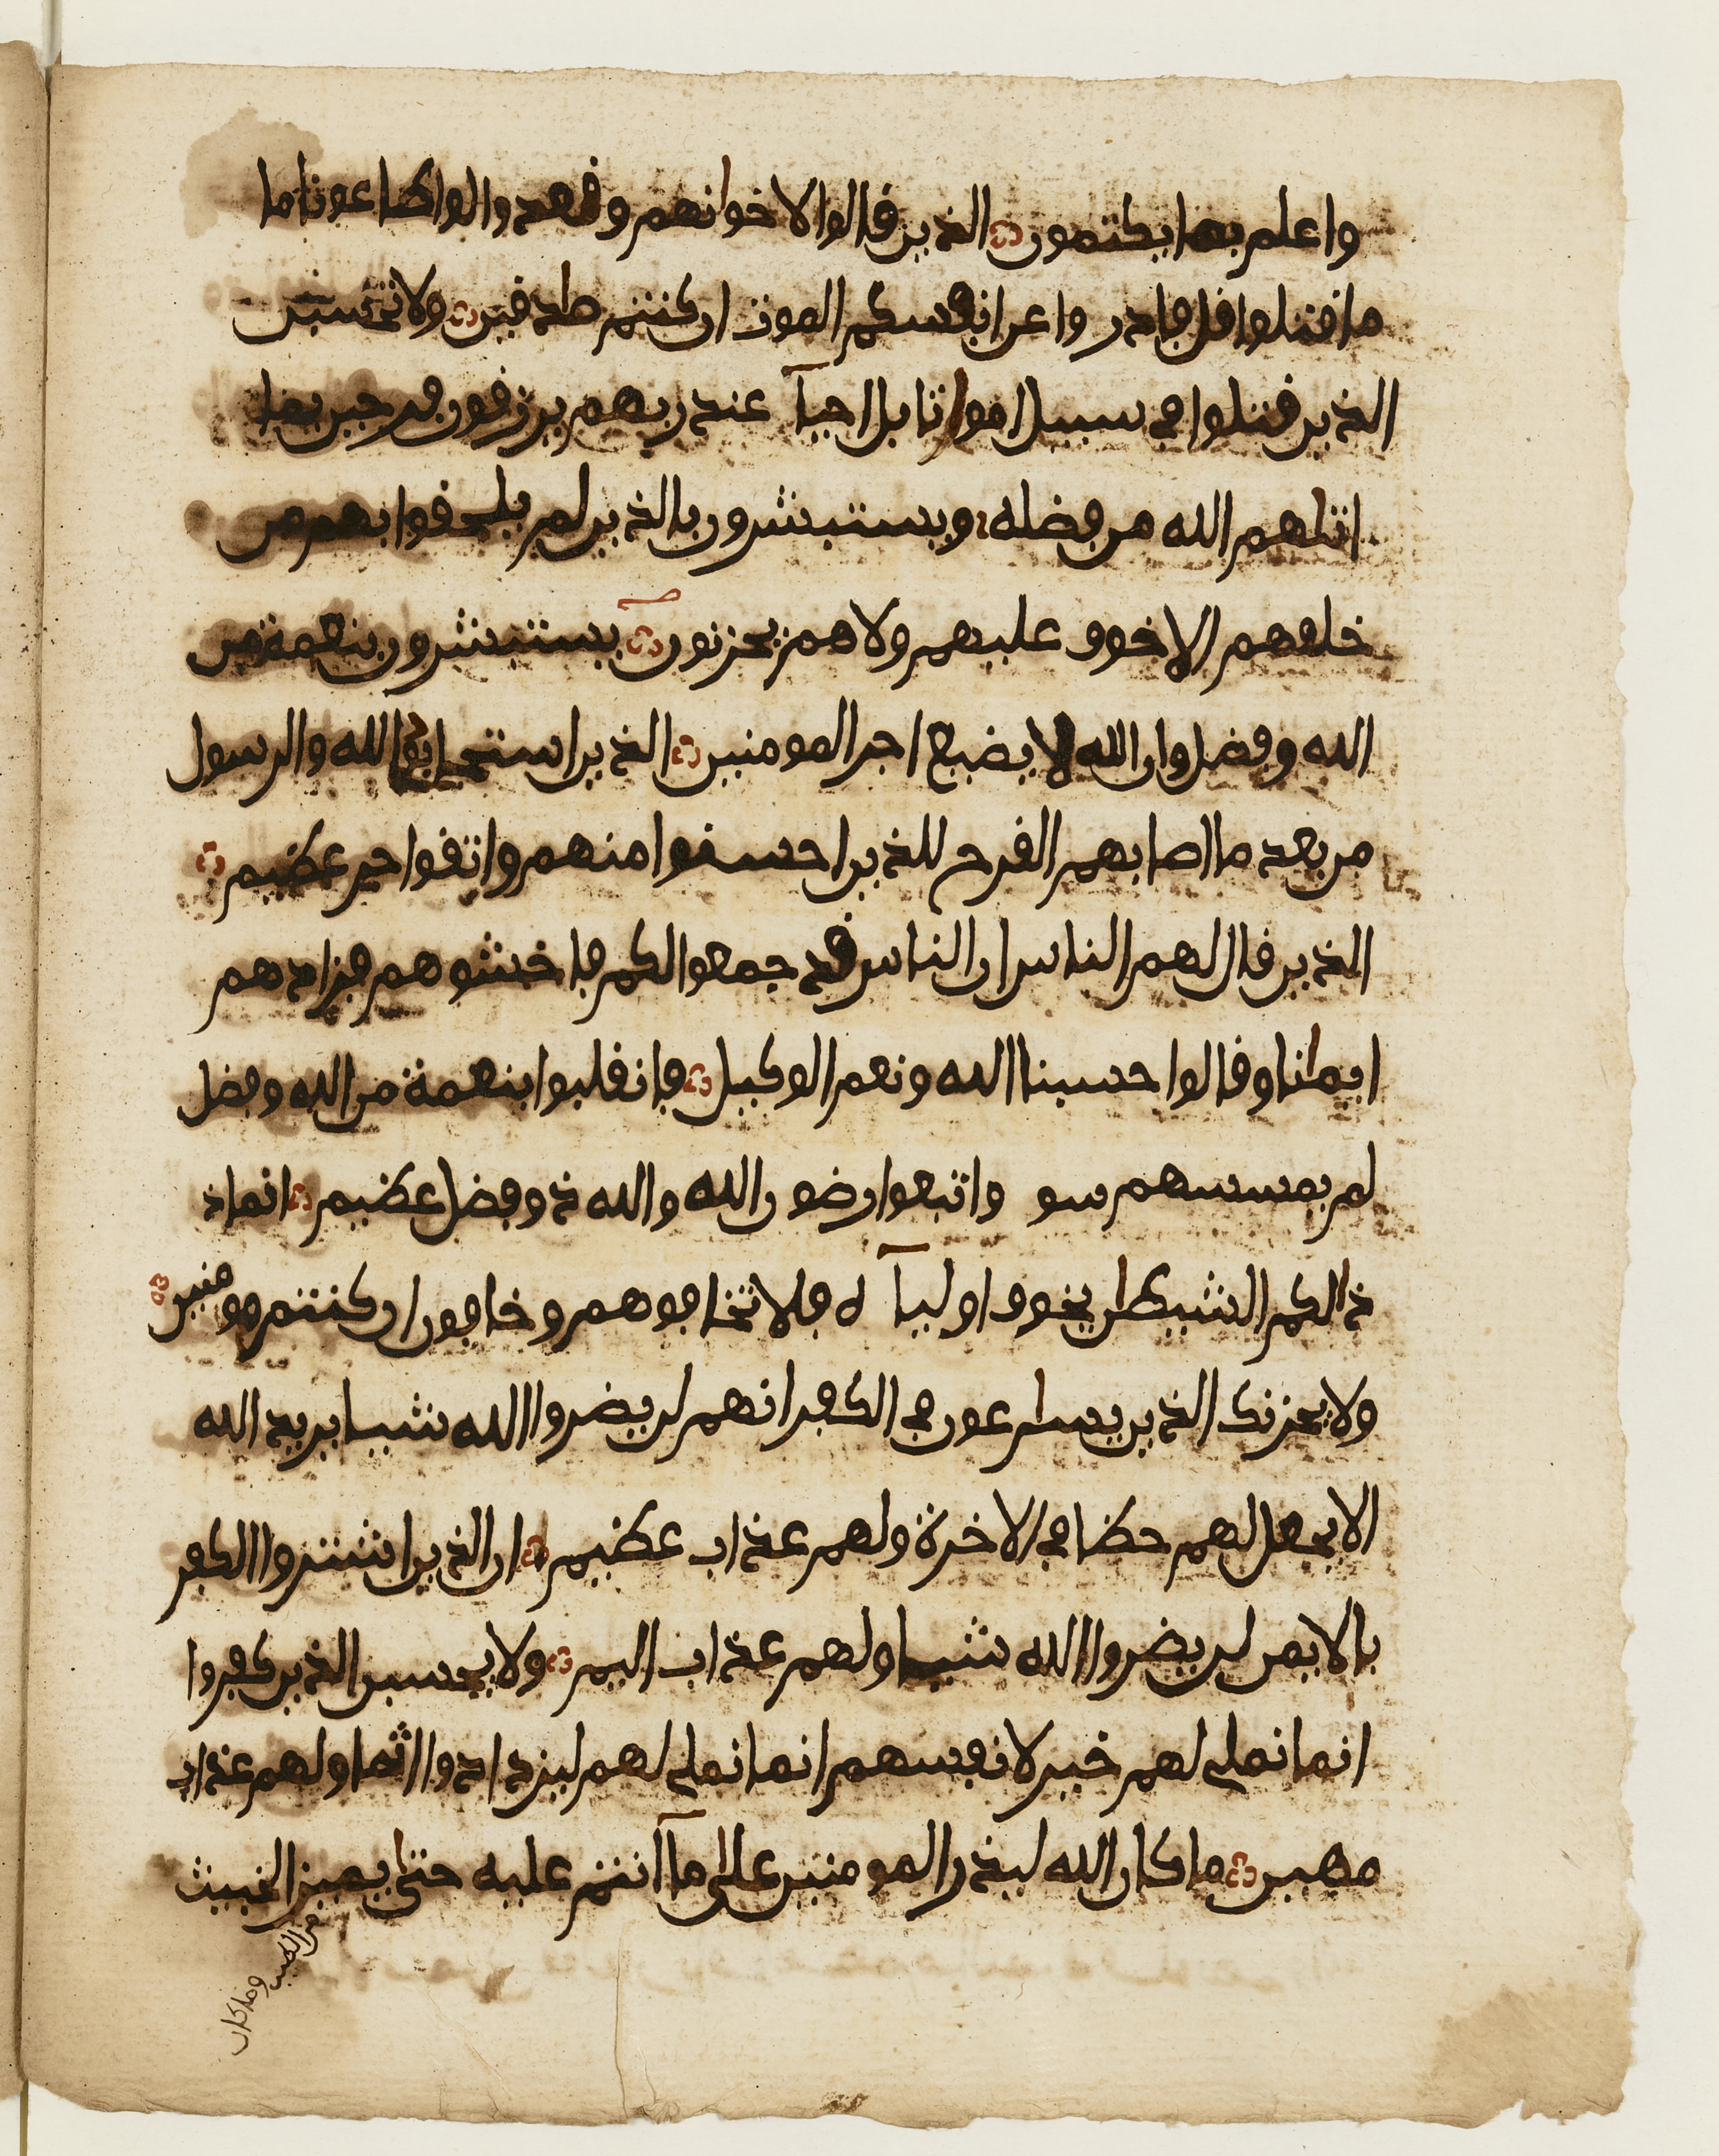 واعلم بما يكتمون الذين قالوا لاخوانهم وقعدوا لو اطاعونا ما
ما قتلوا قل فادر وا عن انفسكم الموت ان كنتم صدقين ولا تحسبن
الذين قتلوا في سبيل امواتا بل احيآ عند ربهم يرزقون فرحين بما
اتاهم الله من فضله ويستبشرون بالذين لم يلحقوا بهم من
خلفهم الا خوف عليهم ولا هم يحزنون يستبشرون بنعمة من
الله وفضل وان الله لا يضيع اجر المومنين الذين استجابوا لله والرسول
من بعد ما اصابهم القرح للذين احسنوا منهم واتقوا اجر عظيم
الذين قال لهم الناس ان الناس قد جمعوا لكم فاخشوهم فزادهم
ايمانا وقالوا حسبنا الله ونعم الوكيل فانقلبوا بنعمة من الله وفضل
لم يمسسهم سو واتبعوا رضون الله والله ذو فضل عظيم انما ذ
ذالكم الشيطان يخوف اوليآ ه فلا تخافوهم وخافون ان كنتم مومنين
ولا يحزنك الذين يسارعون في الكفر انهم لن يضروا الله شيا يريد الله
الا يجعل لهم حظا في الاخرة ولهم عذاب عظيم ان الذين اشتروا الكفر
بالايمن لن يضروا الله شيا ولهم عذاب اليم ولا يحسبن الذين كفروا
انما نملي لهم خير لانفسهم انما نملي لهم ليزدادوا اثما ولهم عذاب
مهين ما كان الله ليذر المومنين على ما آنتم عليه حتى يميز الخبيث
من الطيب وما كان